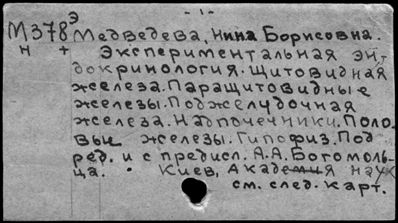 - 1 -
М378 Э Медведева, Нина Борисовна.
н + Экспериментальная эн-
докринология. Щитовидная
железа. Паращитовидные
железы. Поджелудочная
железа. Надпочечники. Поло-
вые железы. Гипофиз. Под
ред. и с предисл. А.А. Богомоль-
ца. Киев, Академия наук
см. след. карт.